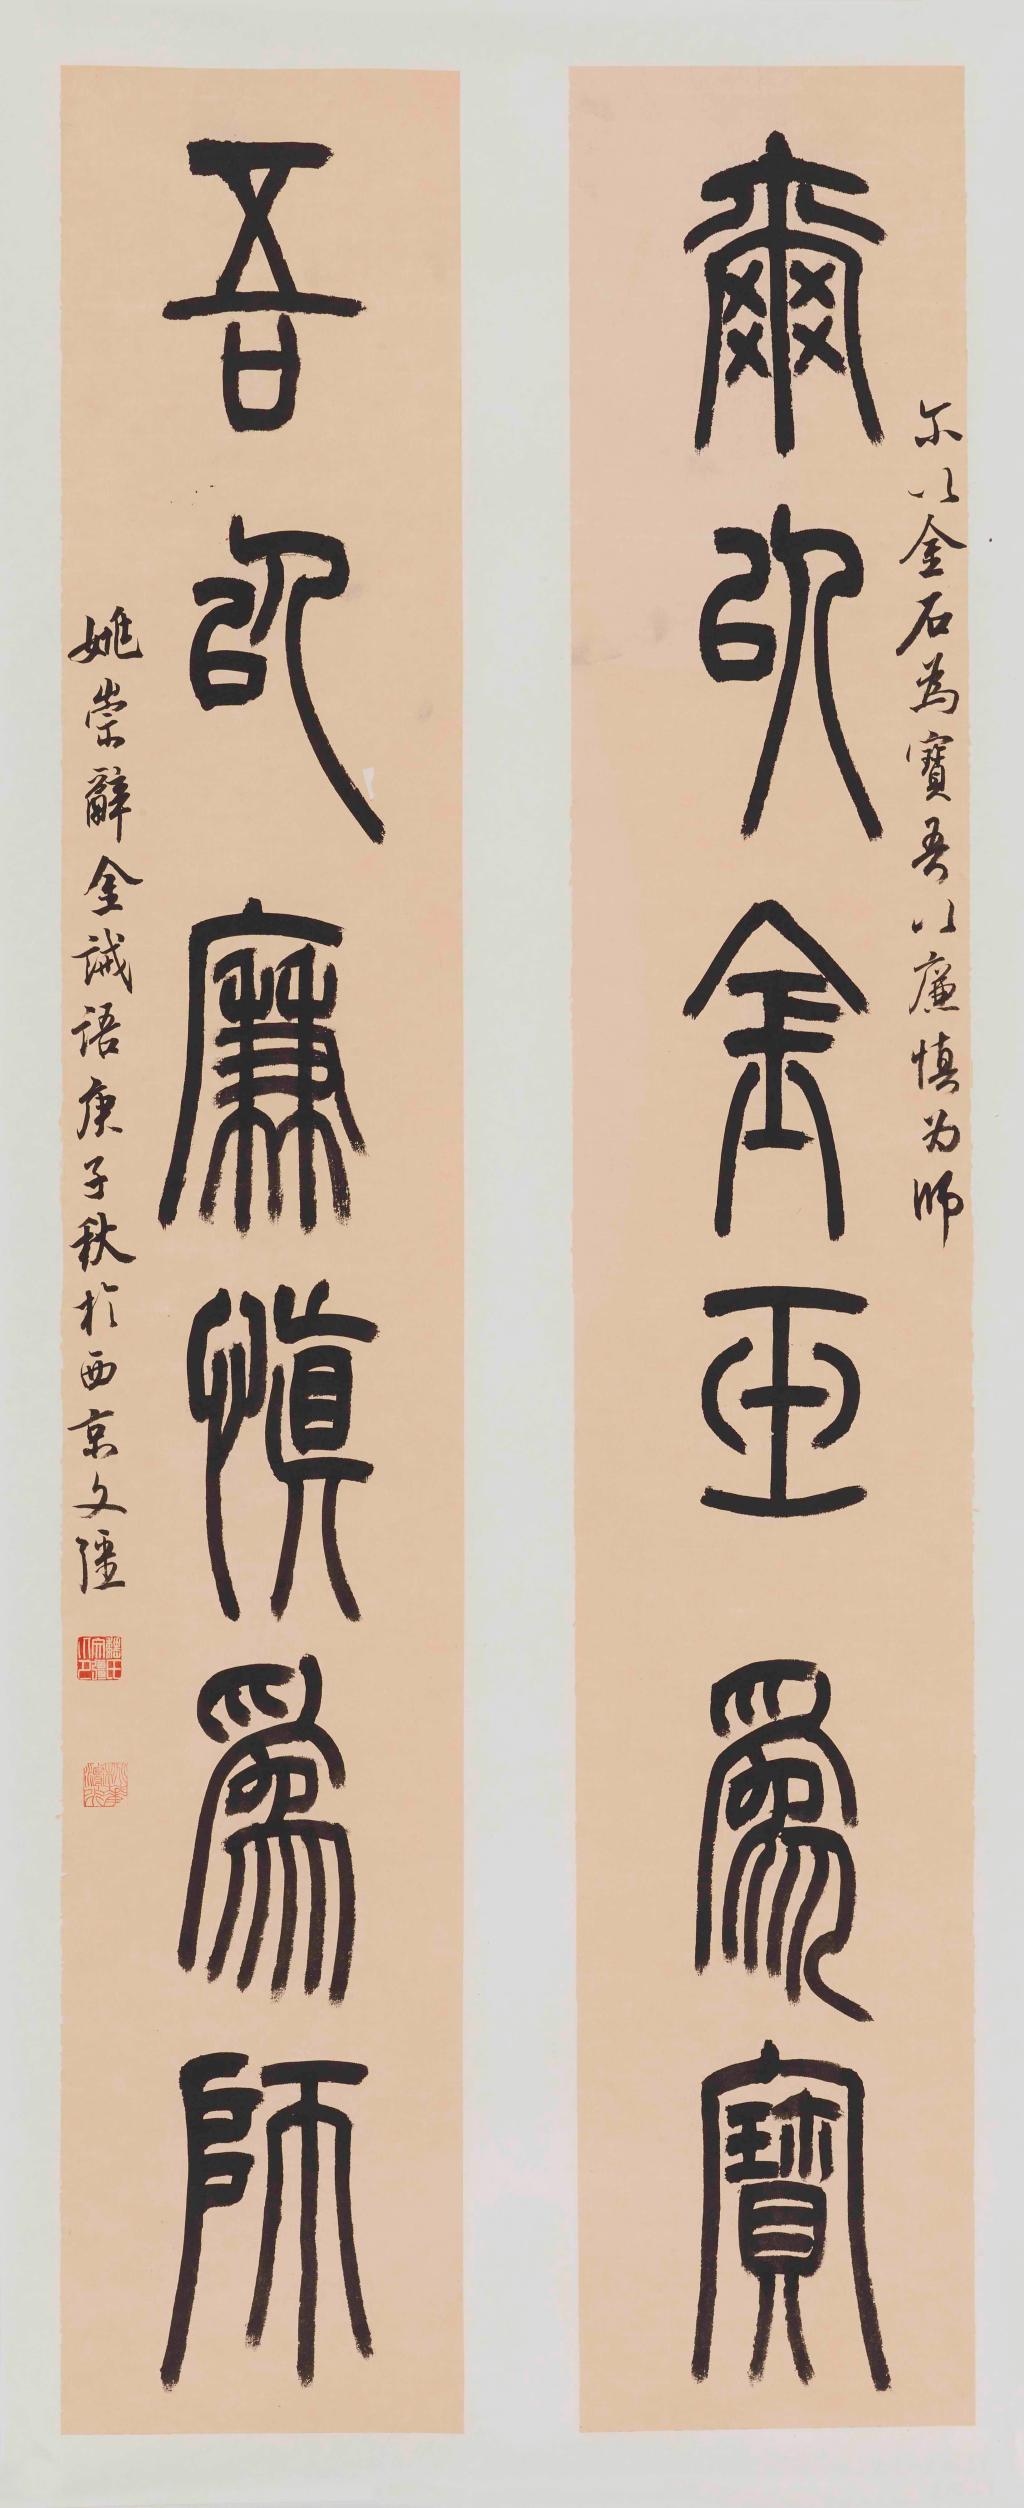 尔以金石為寶吾以廉慎为師
爾以金玉為寶
吾以廉慎為師
姚崇辭金誡語庚子秋於西京文彊